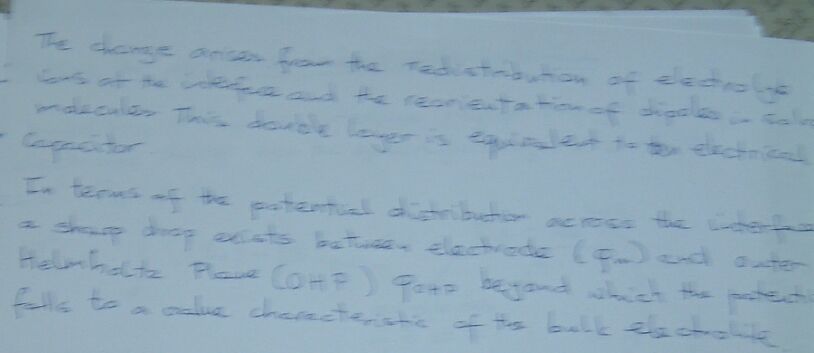 The charge arises from the redistribution of electrolyte
ions at the interface and the reorientation of dipoles in
molecules This double layer is equivalent to electrical
Capacitor
In terms of the potential distribution across the
a sharp drop exists between electrode (φm) and outer
Helmholtz Plane (OHP) φOHP beyond which the
falls to a value characteristic of the bulk electrolite